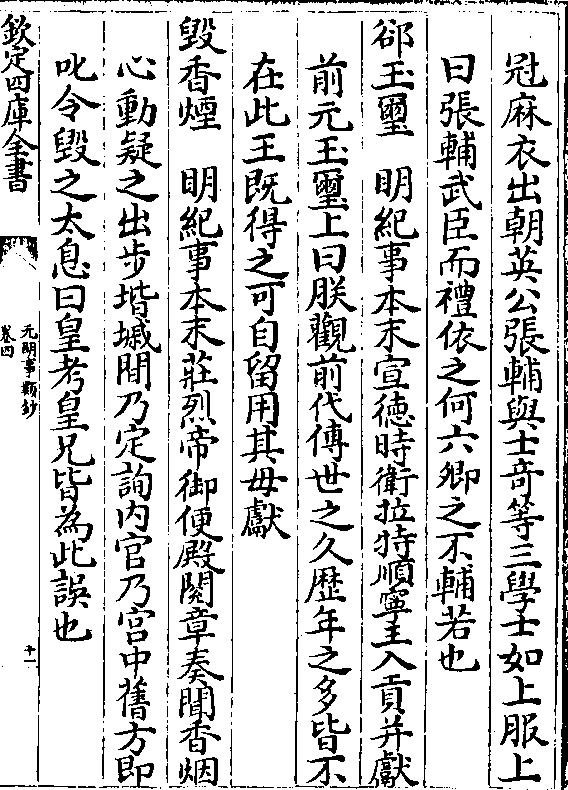 冠麻衣出朝英公張輔與士竒等三學士如上服上
曰張輔武臣而禮依之何六卿之不輔若也
郤玉璽　明紀事本末宣徳時衛拉特順寧王入貢并獻
前元玉璽上曰朕觀前代傳世之久歴年之多皆不
在此王既得之可自留用其毋獻
毀香煙　明紀事本末莊烈帝御便殿閱章奏聞香烟
心動疑之出步堦墄間乃定詢内官乃宫中舊方即
叱令毀之太息曰皇考皇兄皆為此誤也
欽定四庫全書
元明事類鈔
卷四
十一